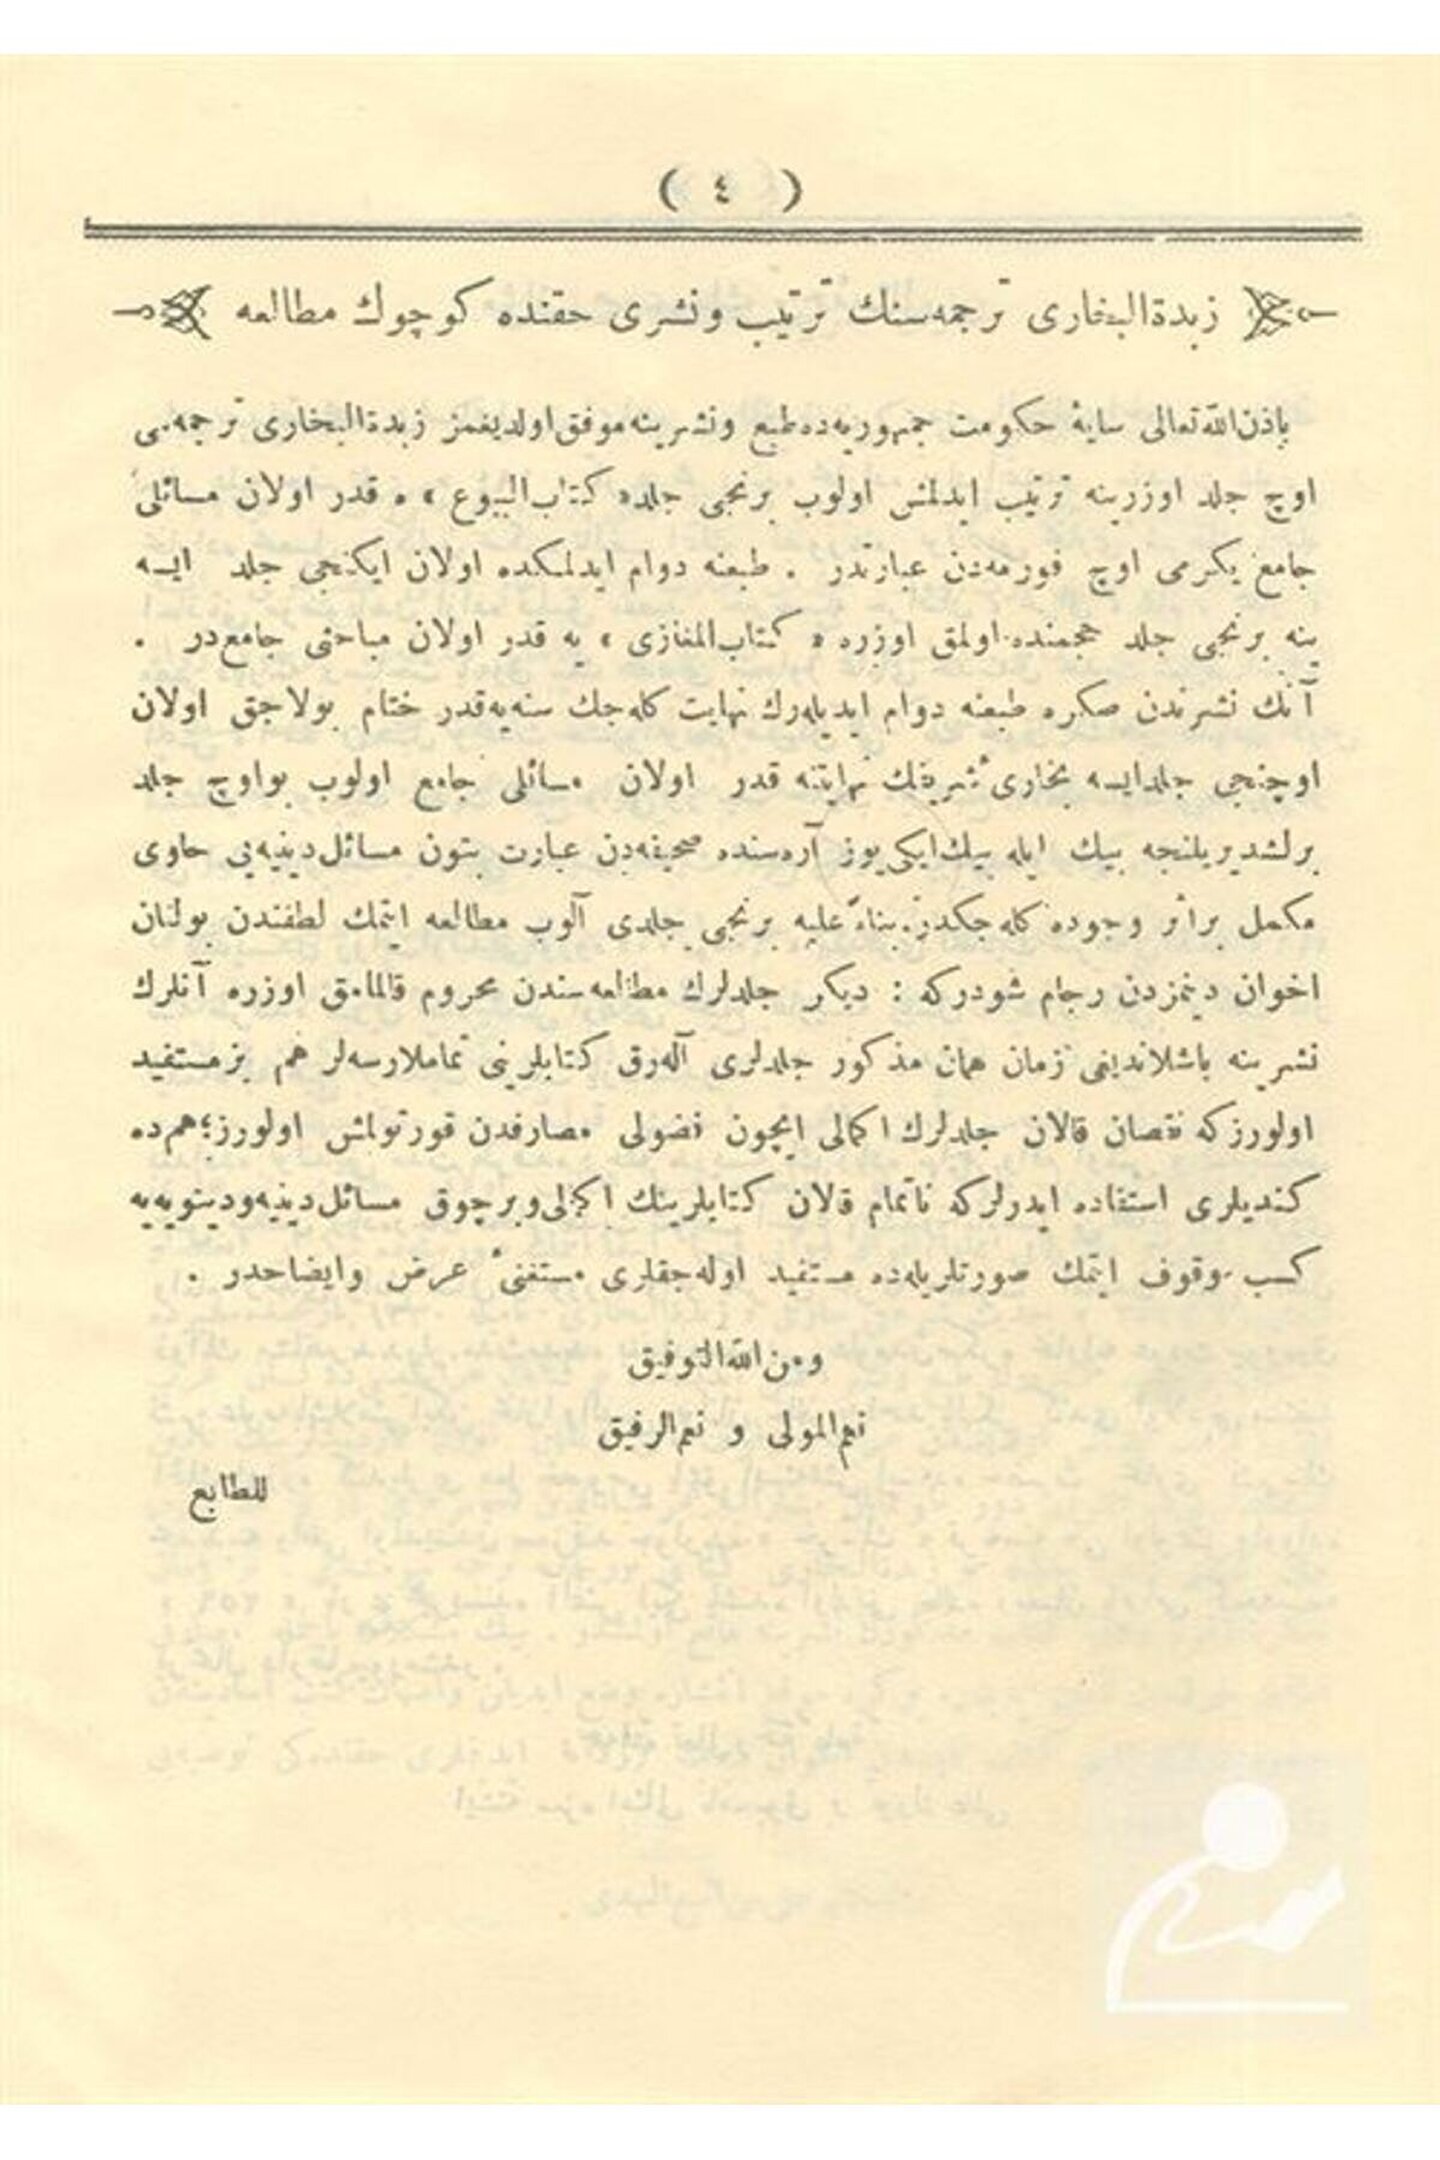 ( ٤ )
زبدةالبخاری ترجمه‌سنك ترتیب ونشری حقنده كوچوك مطالعه
باذن‌الله‌تعالی سایهٔ حكومت جمهوریه‌ده‌طبع ونشرینه‌موفق‌اولدیغمز زبدةالبخاری ترجمه‌سی
اوچ جلد اوزرینه ترتیب ایدلمش اولوب برنجی جلد« كتاب‌البیوع »ه قدر اولان مسائلی
جامع یكرمی اوچ فورمه‌دن عبارتدر . طبعنه دوام ایدلمكده اولان ایكنجی جلد ایسه
ینه برنجی جلد حجمنده اولمق اوزره « كتاب‌المغازی » یه قدر اولان مباحثی جامع‌در .
آنك نشرندن صكره طبعنه دوام ایدیله‌رك نهایت كله‌جك سنه‌یه‌قدر ختام بولاجق اولان
اوچنجی جلدایسه بخاریٔ شریفك نهایتنه قدر اولان مسائلی جامع اولوب بواوچ جلد
برلشدیریلنجه بیك ایله بیك‌ایكی‌یوز آره‌سنده صحیفه‌دن عبارت بتون مسائل‌دینیه‌یی حاوی
مكمل براثر وجوده كله‌جكدر. بناءً علیه برنجی جلدی آلوب مطالعه ایتمك لطفندن بولنان
اخوان دینمزدن رجام شودركه : دیكر جلدلرك مطالعه‌سندن محروم قالمامق اوزره آنلرك
نشرینه باشلاندیغی زمان همان مذكور جلدلری آله‌رق كتابلرینی تماملارسه‌لر هم بزمستفید
اولورزكه نقصان قالان جلدلرك اكمالی ایچون فضولی مصارفدن قورتولمش اولورز؛هم‌ده
كندیلری استفاده ایدرلركه ناتمام قالان كتابلرینك اكمالی‌وبرچوق مسائل‌دینیه‌ودینویه‌یه
كسب وقوف ایتمك صورتلریله‌ده مستفید اوله‌جقلری مستغنیٔ عرض وایضاحدر .
ومن‌الله‌التوفیق
نعم‌المولی و نعم‌الرفیق
للطابع